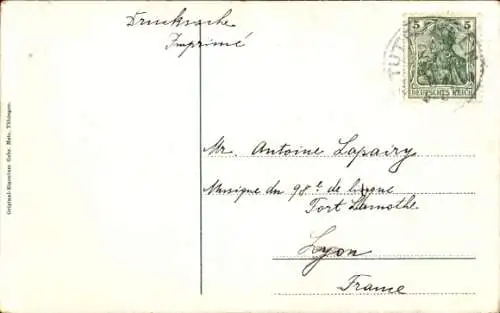 Drucksache
Imprimé
5 5
DEUTSCHES REICH
TUT
Mr. Antoine Lapairy
Musique du 98e de ligne
Fort Lamothe
Lyon
France
Metz, Tübingen.